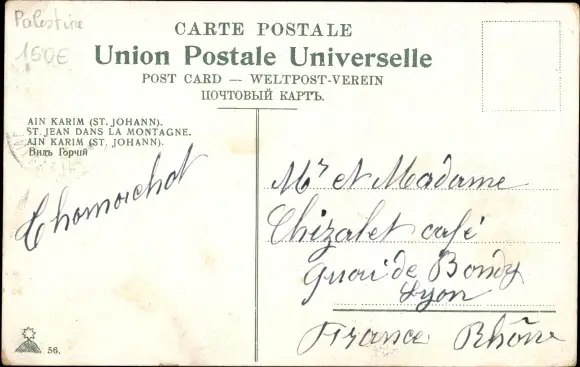 Palestine
150€
CARTE POSTALE
Union Postale Universelle
POST CARD — WELTPOST-VEREIN
ПОЧТОВЫЙ КАРТЪ.
AIN KARIM (ST. JOHANN).
ST. JEAN DANS LA MONTAGNE.
AIN KARIM (ST. JOHANN).
Видъ Горчій
Mr et Madame
Chizalet café
quai de Bondy
Lyon
France Rhône
56.